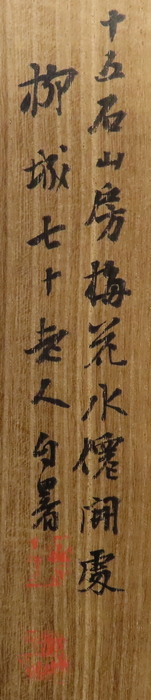 十五石山房梅花水僊開處
柳城七十老人自署